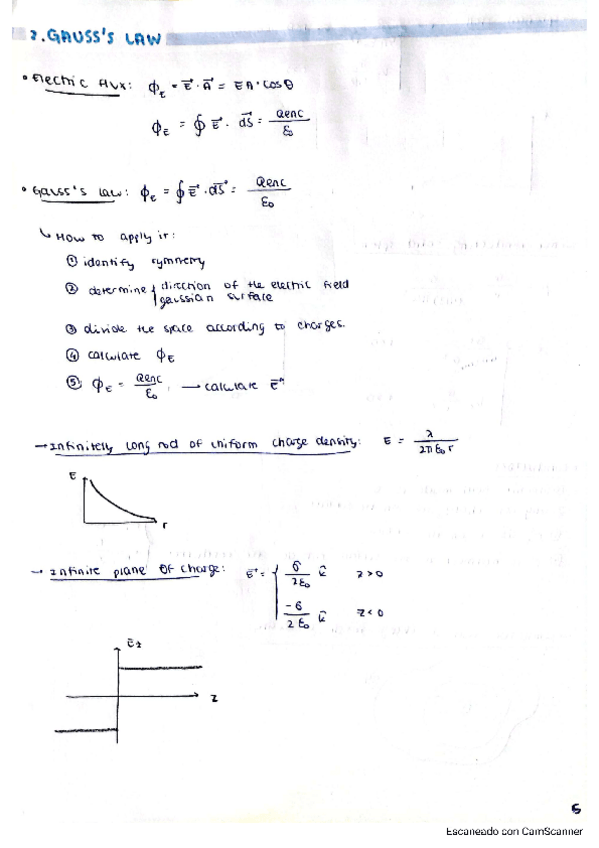 2. GAUSS'S LAW
• Electric flux: ϕE = E⃗ · A⃗ = EA · cosθ
ϕE = ∮ E⃗ · dS⃗ = Qenc/ε0
• Gauss's law: ϕE = ∮ E⃗ · dS⃗ = Qenc/ε0
↳ How to apply it:
① identify symmetry
② determine { direction of the electric field
gaussian surface
③ divide the space according to charges.
④ calculate ϕE
⑤ ϕE = Qenc/ε0, → calculate E⃗
→ Infinitely long rod of uniform charge density: E = λ/2πε0r
E
r
→ Infinite plane of charge: E⃗ = { σ/2ε0 k̂ z>0
-σ/2ε0 k̂ z<0
Ez
z
5
Escaneado con CamScanner